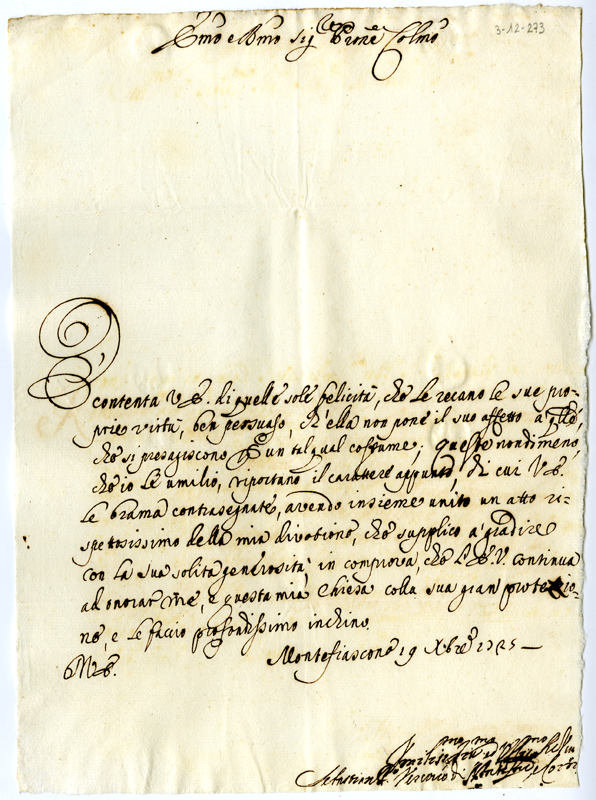 Em̃o e Rm̃o Sig.re P̃rone Colm̃o
3-12-273
È contenta V. E. di quelle sole felicità, che le recano le sue pro-
prie virtù, ben persuaso, ch'ella non pone il suo affetto a q̃lle,
che si presagiscono p un tal qual costume; queste nondimeno,
che io le umilio, riportano il carattere appunto, di cui V. E.
le brama contrasegnate, avendo insieme unito un atto ri-
spettosissimo della mia divotione, che supplico a' gradire
con la sua solita generosità, in comprova, che l'E. V. continua
ad onorar me, e questa mia Chiesa colla sua gran protezio-
ne, e le faccio profondissimo inchino.
Montefiascone 19 Xbre 1725
V. E.
Umiliss.mo ed
Sebastiano Vescovo di Montefias.e e Corn.to